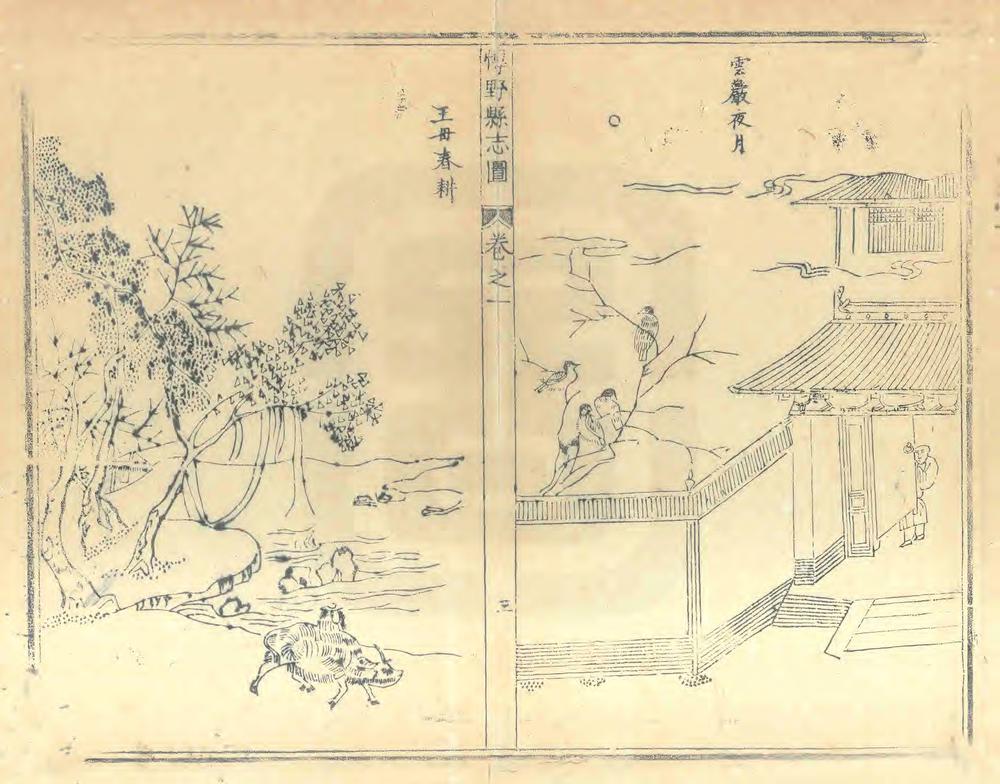 雲巖夜月
博野縣志圖 卷之一
三
王母春耕